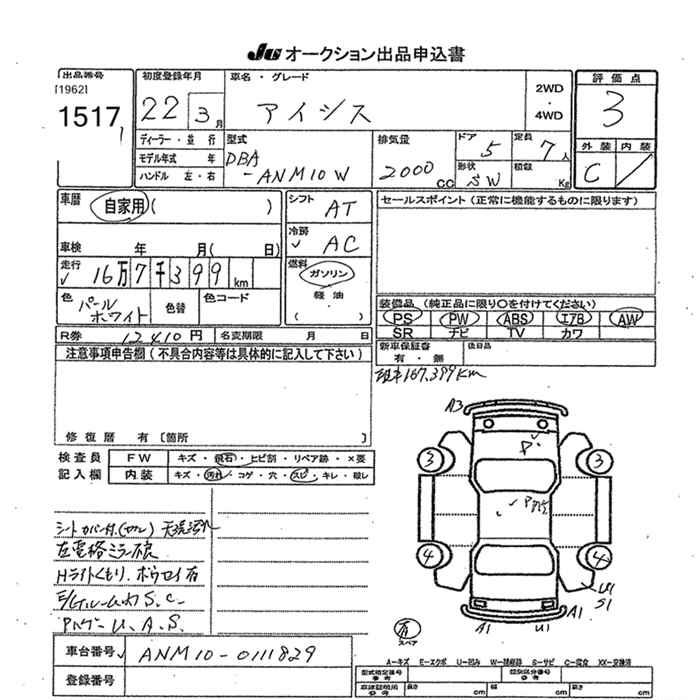 JU オークション出品申込書
出品番号
[1962]
1517
初度登録年月
22 3月
車名・グレード
アイシス
2WD
・
4WD
評価点
3
外装 内装
C /
ディーラー・並行
モデル年式 年
ハンドル 左・右
型式
DBA
-ANM10W
排気量
2000 cc
ドア
5
定員
7人
形状
SW
積載
Kg
車歴
自家用 ( )
車検 年 月( 日)
走行
✓ 16万7千399 km
色
パール
ホワイト
色替
色コード
シフト
AT
冷房
✓ AC
燃料
ガソリン
軽油
( )
セールスポイント(正常に機能するものに限ります)
装備品 (純正品に限り○を付けてください)
PS PW ABS エアB AW
SR ナビ TV カワ
新車保証書
有・無
後日品
R券 12410円 名変期限 月 日
注意事項申告欄(不具合内容等は具体的に記入して下さい)
修復歴 有 [箇所 ]
距車167,399Km
検査員
記入欄
FW キズ・飛石・ヒビ割・リペア跡・×要
内装 キズ・汚れ・コゲ・穴・スレ・キレ・破し
シートカバー付.
左電格ミラー破
Hライトくもり.
E/Gルーム内 S.C.
U.A.S.
A3
P
3 3
P
4 4
U1
S1
A1 U1 A1
有
スペア
車台番号 ✓ ANM10-0111829
登録番号
A-キズ E-エクボ U-凹み W-補修跡 S-サビ C-腐食 XX-交換済
型式指定番号
参考
類別区分番号
参考
車検証記載
参考
長さ cm
幅 cm
高さ cm